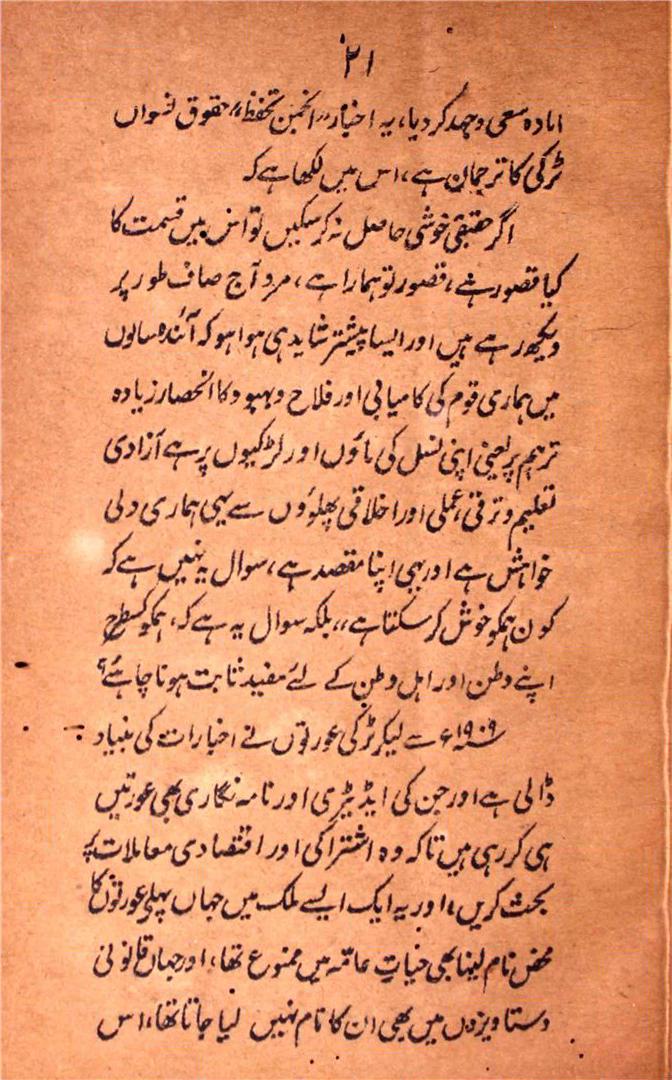 ۲۱
امادہ سعی وجہد کردیا، یہ اخبار "انجمن تحفظ" حقوق نسواں
ٹرکی کا ترجمان ہے، اس میں لکھا ہے کہ
اگر حقیقی خوشی حاصل نہ کرسکیں تو اس میں قسمت کا
کیا قصور ہے، قصور تو ہمارا ہے، مرد آج صاف طور پر
دیکھ رہے ہیں اور ایسا پیشتر شاید ہی ہوا ہو کہ آئندہ سالوں
میں ہماری قوم کی کامیابی اور فلاح وبہبود کا انحصار زیادہ
تر ہم پر یعنی اپنی نسل کی ماؤں اور لڑکیوں پر ہے آزادی
تعلیم و ترقی، عملی اور اخلاقی پہلوؤں سے یہی ہماری دلی
خواہش ہے اور یہی اپنا مقصد ہے، سوال یہ نہیں ہے کہ
کون ہمکو خوش کرسکتا ہے،، بلکہ سوال یہ ہے کہ، ہمکو کسطرح
اپنے وطن اور اہل وطن کے لئے مفید ثابت ہونا چاہئے؟
سنہ ۱۹۰۹ء سے لیکر ٹرکی عورتوں نے اخبارات کی بنیاد
ڈالی ہے اور جن کی ایڈیٹری اور نامہ نگاری بھی عورتیں
ہی کررہی ہیں تاکہ وہ اشتراکی اور اقتصادی معاملات پر
بحث کریں، اور یہ ایک ایسے ملک میں جہاں پہلے عورتوں کا
محض نام لینا بھی حیات عامہ میں ممنوع تھا، اور جہاں قانونی
دستاویزوں میں بھی ان کا نام نہیں لیا جاتا تھا، اس